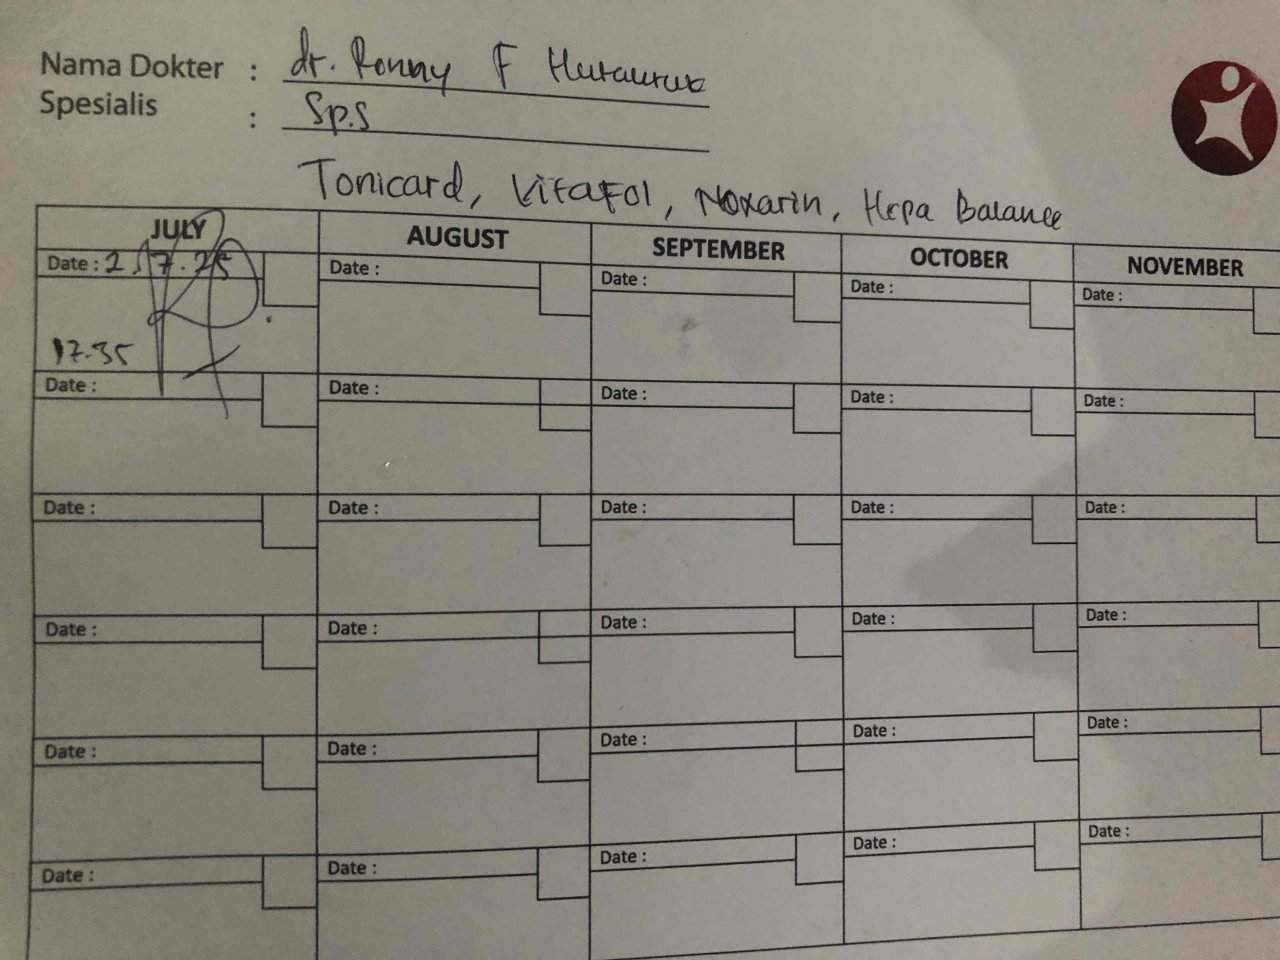 Nama Dokter : dr. Ronny F Hutauruk
Spesialis : Sp.S
Tonicard, Vitafol, Noxarin, Hepa Balance
JULY AUGUST SEPTEMBER OCTOBER NOVEMBER
Date : 2.7.25 Date : Date : Date : Date :
17.35
Date : Date : Date : Date : Date :
Date : Date : Date : Date : Date :
Date : Date : Date : Date : Date :
Date : Date : Date : Date : Date :
Date : Date : Date : Date : Date :